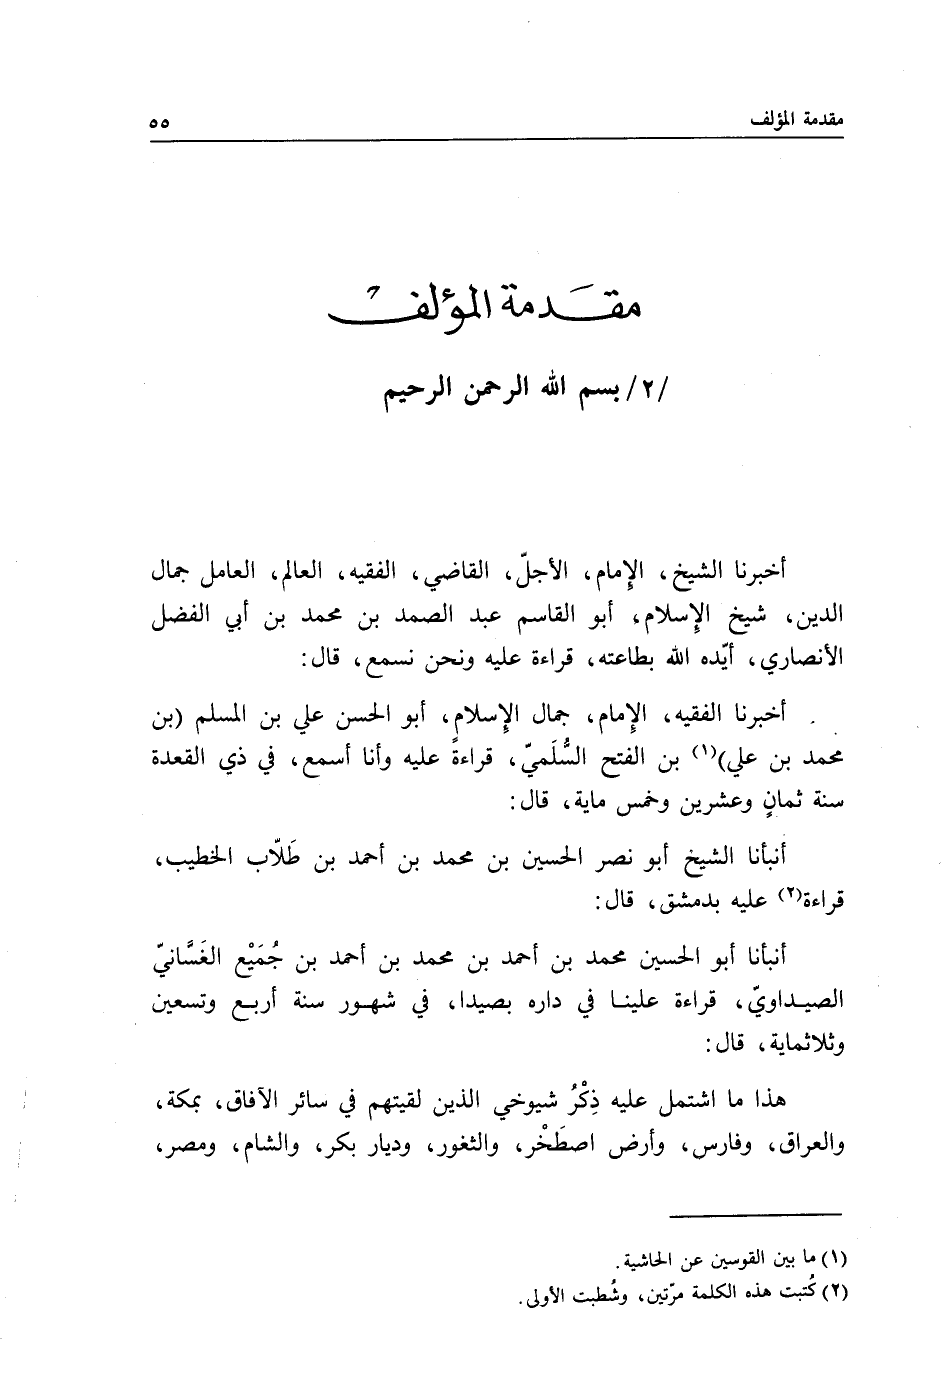 مقدمة المؤلف ٥٥
مقدمة المؤلف
/٢/ بسم الله الرحمن الرحيم
أخبرنا الشيخ، الإمام، الأجلّ، القاضي، الفقيه، العالم، العامل جمال
الدين، شيخ الإسلام، أبو القاسم عبد الصمد بن محمد بن أبي الفضل
الأنصاري، أيّده الله بطاعته، قراءة عليه ونحن نسمع، قال:
أخبرنا الفقيه، الإمام، جمال الإسلام، أبو الحسن علي بن المسلم (بن
محمد بن علي)(١) بن الفتح السُّلَميّ، قراءةً عليه وأنا أسمع، في ذي القعدة
سنة ثمانٍ وعشرين وخمس ماية، قال:
أنبأنا الشيخ أبو نصر الحسين بن محمد بن أحمد بن طَلّاب الخطيب،
قراءة(٢) عليه بدمشق، قال:
أنبأنا أبو الحسين محمد بن أحمد بن محمد بن أحمد بن جُمَيْع الغَسَّانيّ
الصيداويّ، قراءة علينا في داره بصيدا، في شهور سنة أربع وتسعين
وثلاثماية، قال:
هذا ما اشتمل عليه ذِكْرُ شيوخي الذين لقيتهم في سائر الآفاق، بمكة،
والعراق، وفارس، وأرض اصطَخْر، والثغور، وديار بكر، والشام، ومصر،
(١) ما بين القوسين عن الحاشية.
(٢) كُتبت هذه الكلمة مرّتين، وشُطبت الأولى.